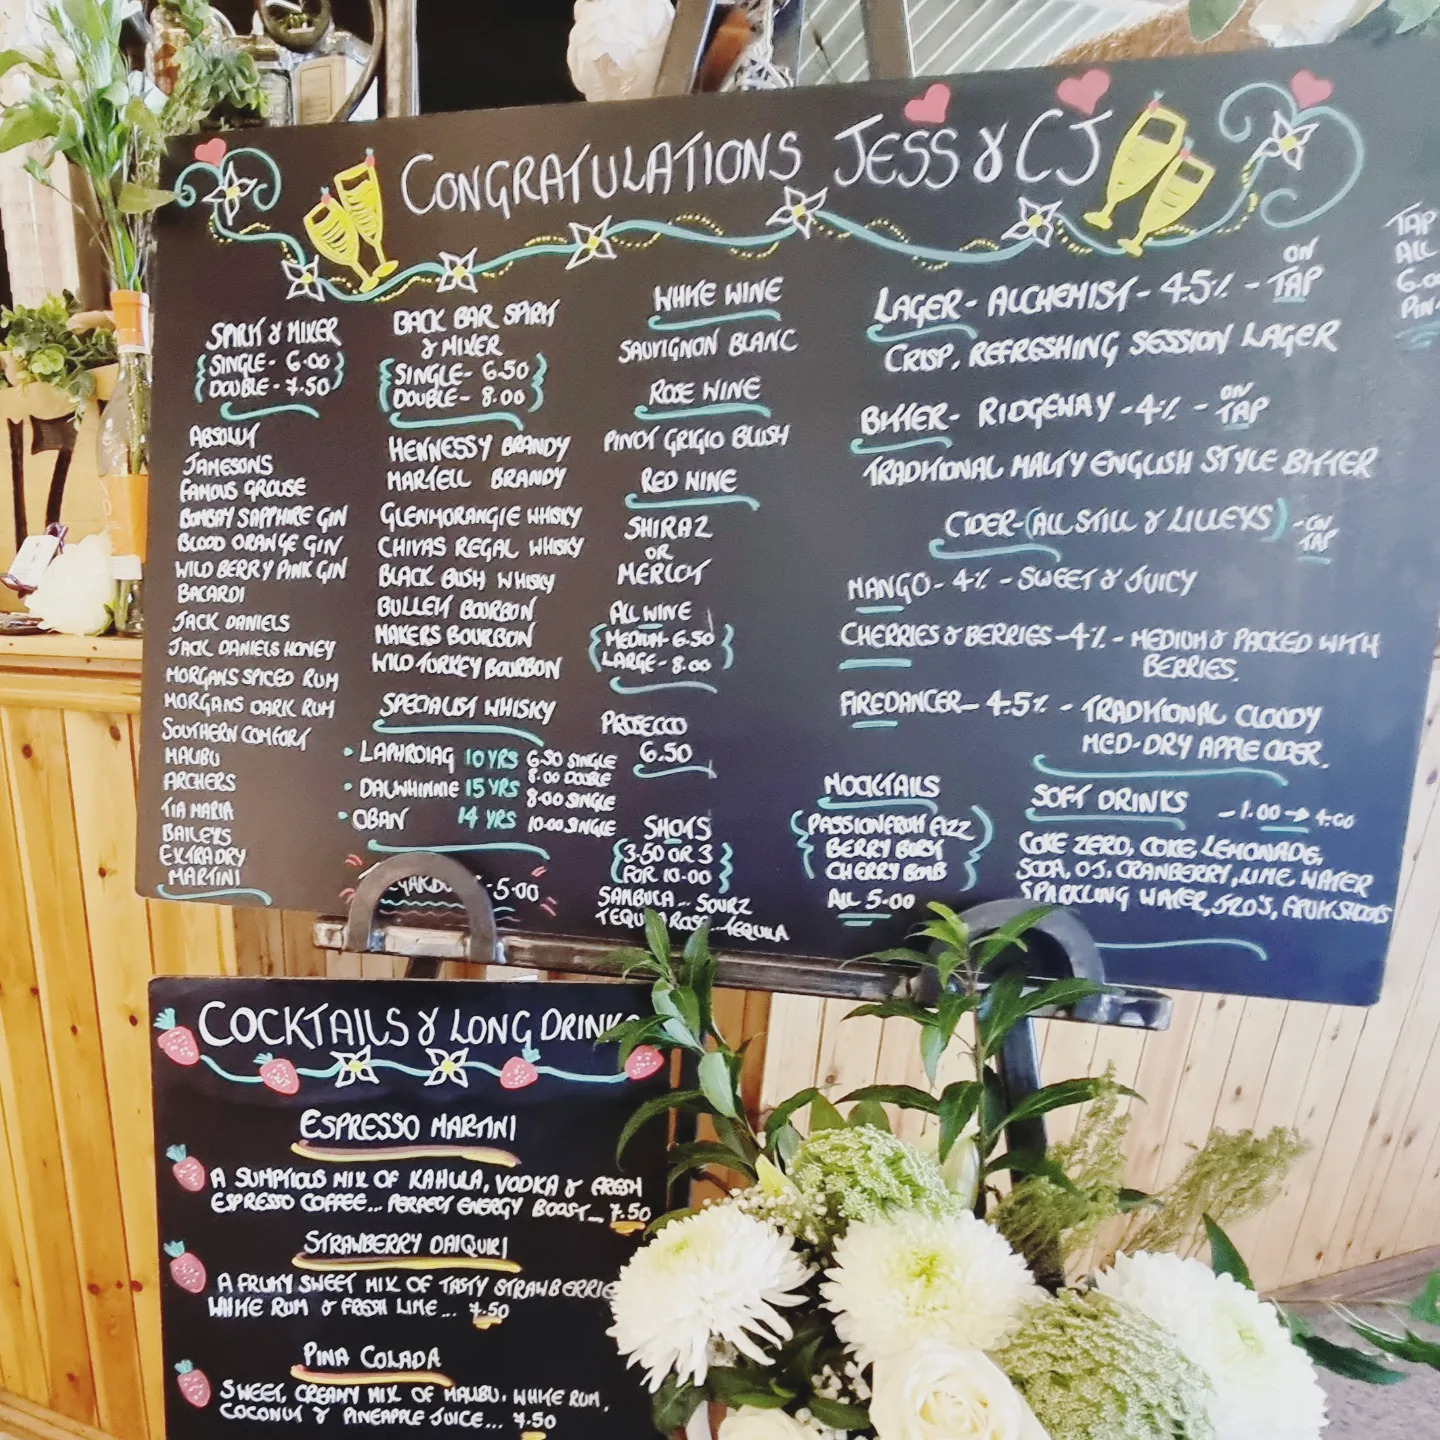 CONGRATULATIONS JESS & CJ
SPIRIT & MIXER
SINGLE - 6.00
DOUBLE - 7.50
ABSOLUT
JAMESONS
FAMOUS GROUSE
BOMBAY SAPPHIRE GIN
BLOOD ORANGE GIN
WILD BERRY PINK GIN
BACARDI
JACK DANIELS
JACK DANIELS HONEY
MORGANS SPICED RUM
MORGANS DARK RUM
SOUTHERN COMFORT
MALIBU
ARCHERS
TIA MARIA
BAILEYS
EXTRA DRY
MARTINI
BACK BAR SPIRIT
& MIXER
SINGLE - 6.50
DOUBLE - 8.00
HENNESSY BRANDY
MARTELL BRANDY
GLENMORANGIE WHISKY
CHIVAS REGAL WHISKY
BLACK BUSH WHISKY
BULLEIT BOURBON
MAKERS BOURBON
WILD TURKEY BOURBON
SPECIALIST WHISKY
• LAPHROIAG 10 YRS 6.50 SINGLE
8.00 DOUBLE
• DALWHINNIE 15 YRS 8.00 SINGLE
• OBAN 14 YRS 10.00 SINGLE
- 5.00
WHITE WINE
SAUVIGNON BLANC
ROSE WINE
PINOT GRIGIO BLUSH
RED WINE
SHIRAZ
OR
MERLOT
ALL WINE
MEDIUM - 6.50
LARGE - 8.00
PROSECCO
6.50
SHOTS
3.50 OR 3
FOR 10.00
SAMBUCA... SOURZ
ROSE... TEQUILA
LAGER - ALCHEMIST - 4.5% - ON TAP
CRISP, REFRESHING SESSION LAGER
BITTER - RIDGEWAY - 4% - ON TAP
TRADITIONAL MALTY ENGLISH STYLE BITTER
CIDER - (ALL STILL & LILLEYS) - ON TAP
MANGO - 4% - SWEET & JUICY
CHERRIES & BERRIES - 4% - MEDIUM & PACKED WITH
BERRIES.
FIREDANCER - 4.5% - TRADITIONAL CLOUDY
MED-DRY APPLE CIDER.
MOCKTAILS
PASSIONFRUIT FIZZ
BERRY BURST
CHERRY BOMB
ALL 5.00
SOFT DRINKS - 1.00 → 4.00
COKE ZERO, COKE, LEMONADE,
SODA, OJ, CRANBERRY, LIME, WATER
SPARKLING WATER, J2O'S, FRUIT SHOOTS
TAP
ALL
COCKTAILS & LONG DRINKS
ESPRESSO MARTINI
A SUMPTIOUS MIX OF KAHULA, VODKA & FRESH
ESPRESSO COFFEE... PERFECT ENERGY BOOST... 7.50
STRAWBERRY DAIQUIRI
A FRUITY SWEET MIX OF TASTY STRAWBERRIE
WHITE RUM & FRESH LIME... 7.50
PINA COLADA
SWEET, CREAMY MIX OF MALIBU, WHITE RUM,
COCONUT & PINEAPPLE JUICE... 7.50